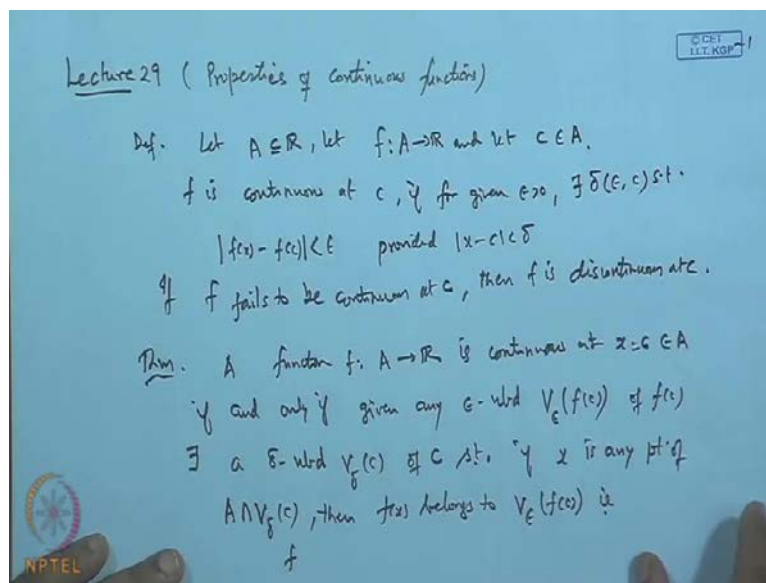 © CET
I.I.T. KGP
-1
Lecture 29 ( Properties of continuous functions)
Def. Let A ⊆ R, let f: A→R and let c ∈ A.
f is continuous at c, if for given ε>0, ∃ δ(ε, c) s.t.
|f(x) - f(c)| < ε provided |x-c| < δ
If f fails to be continuous at c, then f is discontinuous at c.
Thm. A function f: A → R is continuous at x=c ∈ A
if and only if given any ε-nbd V_ε(f(c)) of f(c)
∃ a δ-nbd V_δ(c) of c s.t. if x is any pt. of
A∩V_δ(c), then f(x) belongs to V_ε(f(c)) ie
f
NPTEL